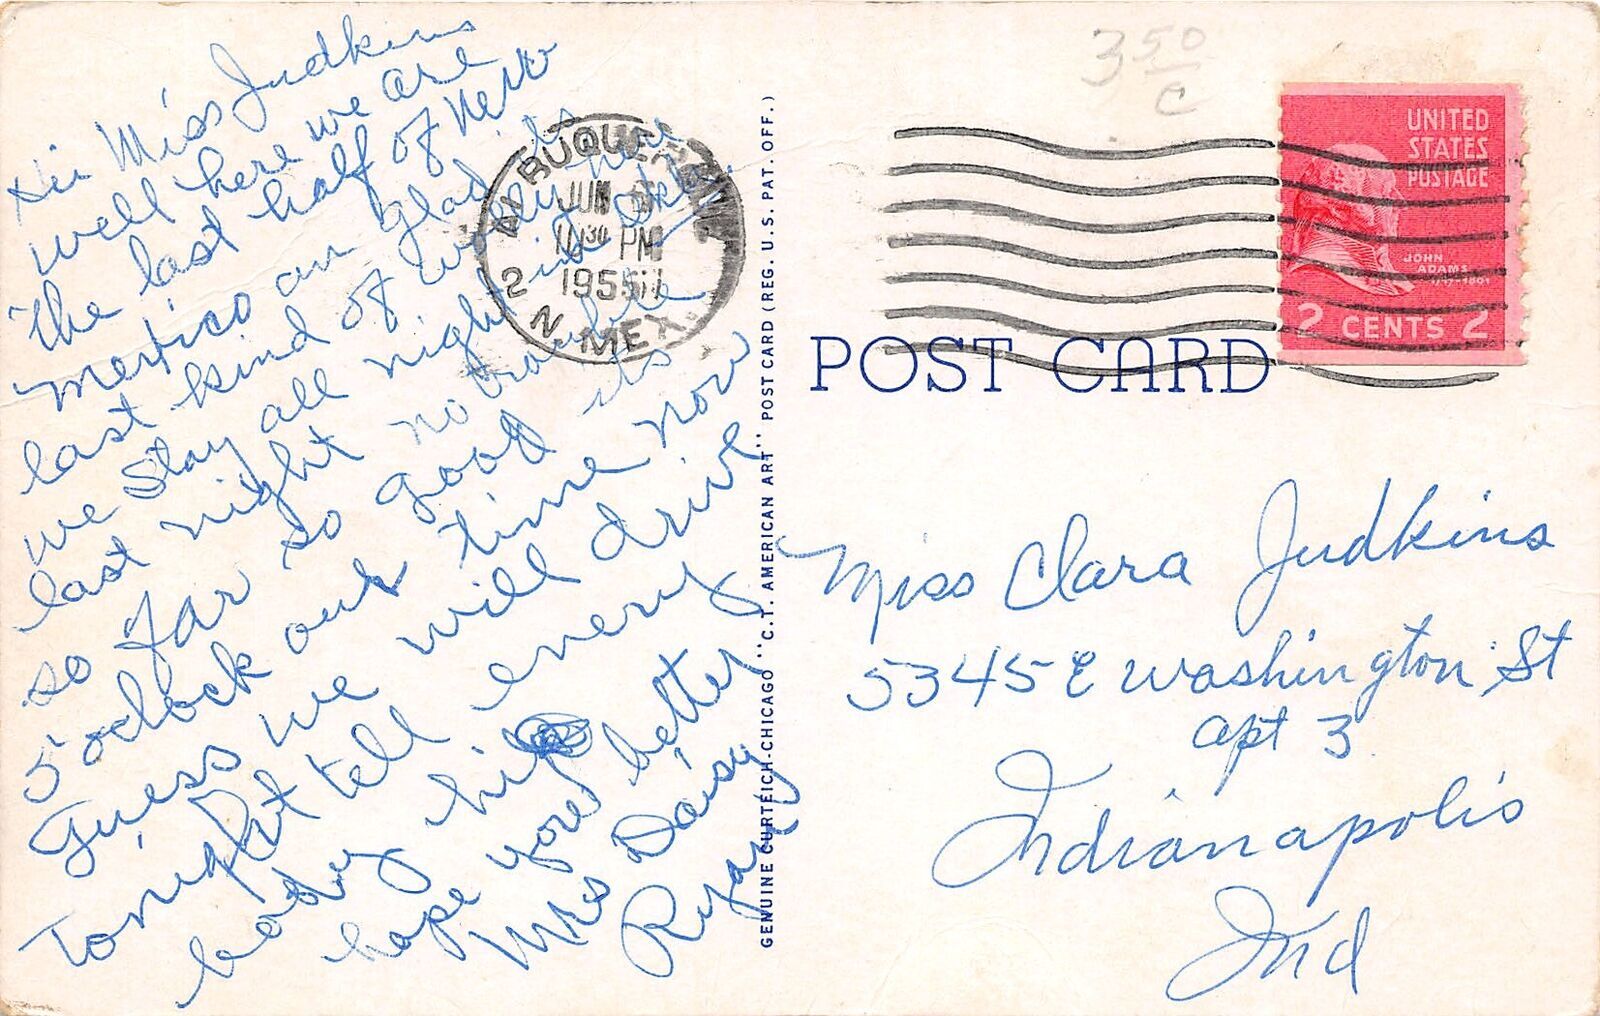 Hi Miss Judkins
well here we are
The last half of New
Mexico an glad its
last kind of wooly here
we Stay all night in Okla.
last night no trouble
so far so good its
5 oclock our time now
Guess we will drive
Tonight tell every
body hi
hope your better
Mrs Daisy
Ryan
GENUINE CURTEICH-CHICAGO "C.T. AMERICAN ART" POST CARD (REG. U.S. PAT. OFF.)
ALBUQUERQUE
JUN
PM
1955
2
N. MEX.
3 50
C
UNITED
STATES
POSTAGE
JOHN
ADAMS
1797-1801
2 CENTS 2
POST CARD
Miss Clara Judkins
5345 E Washington St
apt 3
Indianapolis
Ind